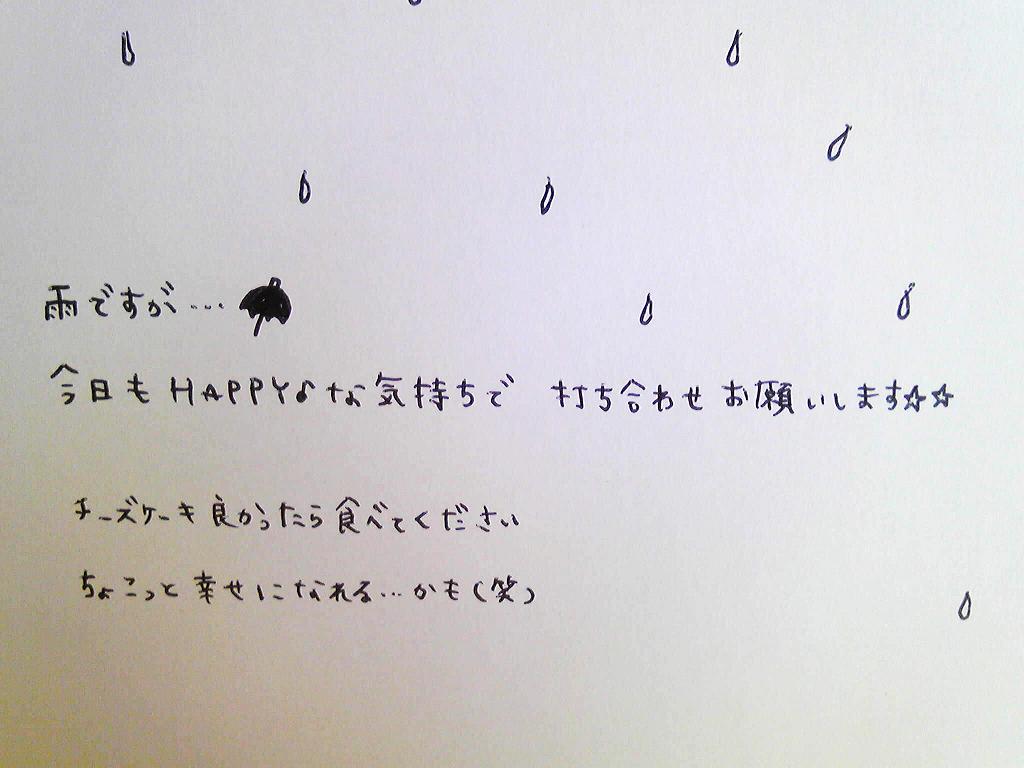 雨ですが…
今日もHAPPY♪な気持ちで 打ち合わせお願いします☆☆
チーズケーキ良かったら食べてください
ちょこっと幸せになれる…かも(笑)